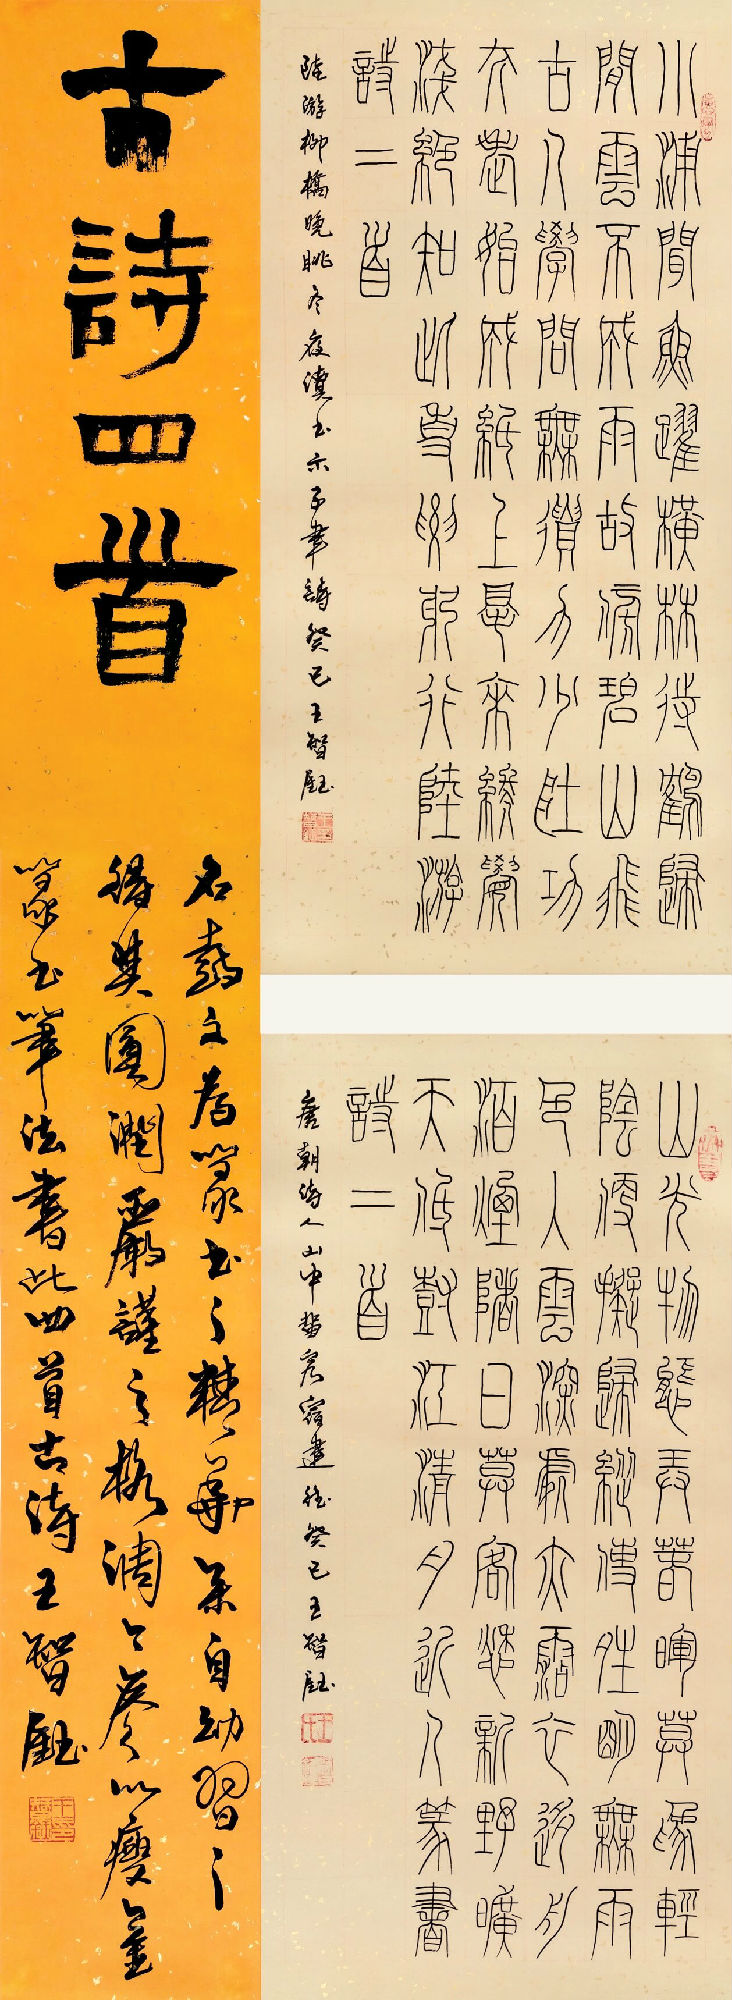 古詩四首
石鼓文為篆书之精華余自幼習之
得其圓潤嚴謹之格調今奏以瘦金
篆书筆法書此四首古诗王智鈺
小浦聞魚躍橫林待鶴歸
閒雲不成雨故傍碧山飛
古人學問無遺力少壯功
夫老始成紙上得來終覺
淺絕知此事要躬行陸游
詩二首
陸游柳橋晚眺冬夜讀书示子聿詩癸巳王智鈺
山光物態弄春暉莫為輕
陰便擬歸縱使晴明無雨
色入雲深處亦沾衣移舟
泊煙渚日暮客愁新野曠
天低樹江清月近人篆書
詩二首
唐朝诗人山中留客宿建德癸巳王智鈺